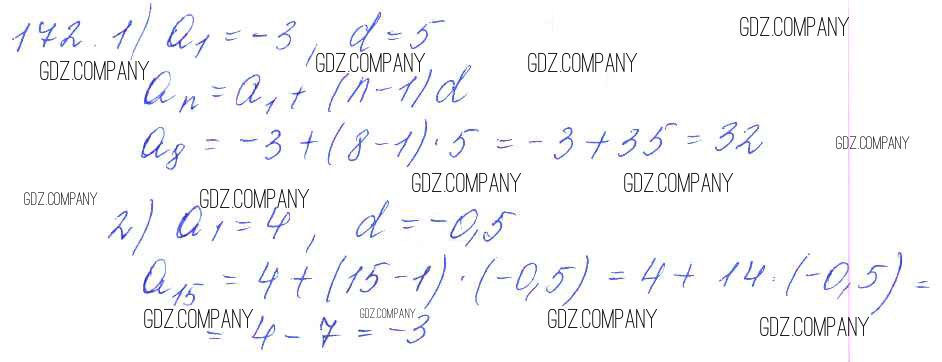 GDZ.COMPANY
172. 1) a₁ = -3, d = 5
GDZ.COMPANY GDZ.COMPANY GDZ.COMPANY
aₙ = a₁ + (n-1)d
a₈ = -3 + (8-1)·5 = -3 + 35 = 32
GDZ.COMPANY
GDZ.COMPANY GDZ.COMPANY
GDZ.COMPANY GDZ.COMPANY
2) a₁ = 4, d = -0,5
a₁₅ = 4 + (15-1)·(-0,5) = 4 + 14·(-0,5) =
= 4 - 7 = -3
GDZ.COMPANY GDZ.COMPANY GDZ.COMPANY GDZ.COMPANY